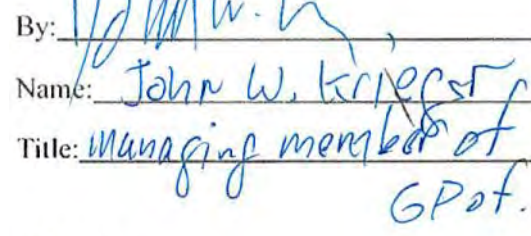 By: John W. K
Name: John W. Krieger
Title: managing member of
GP of.